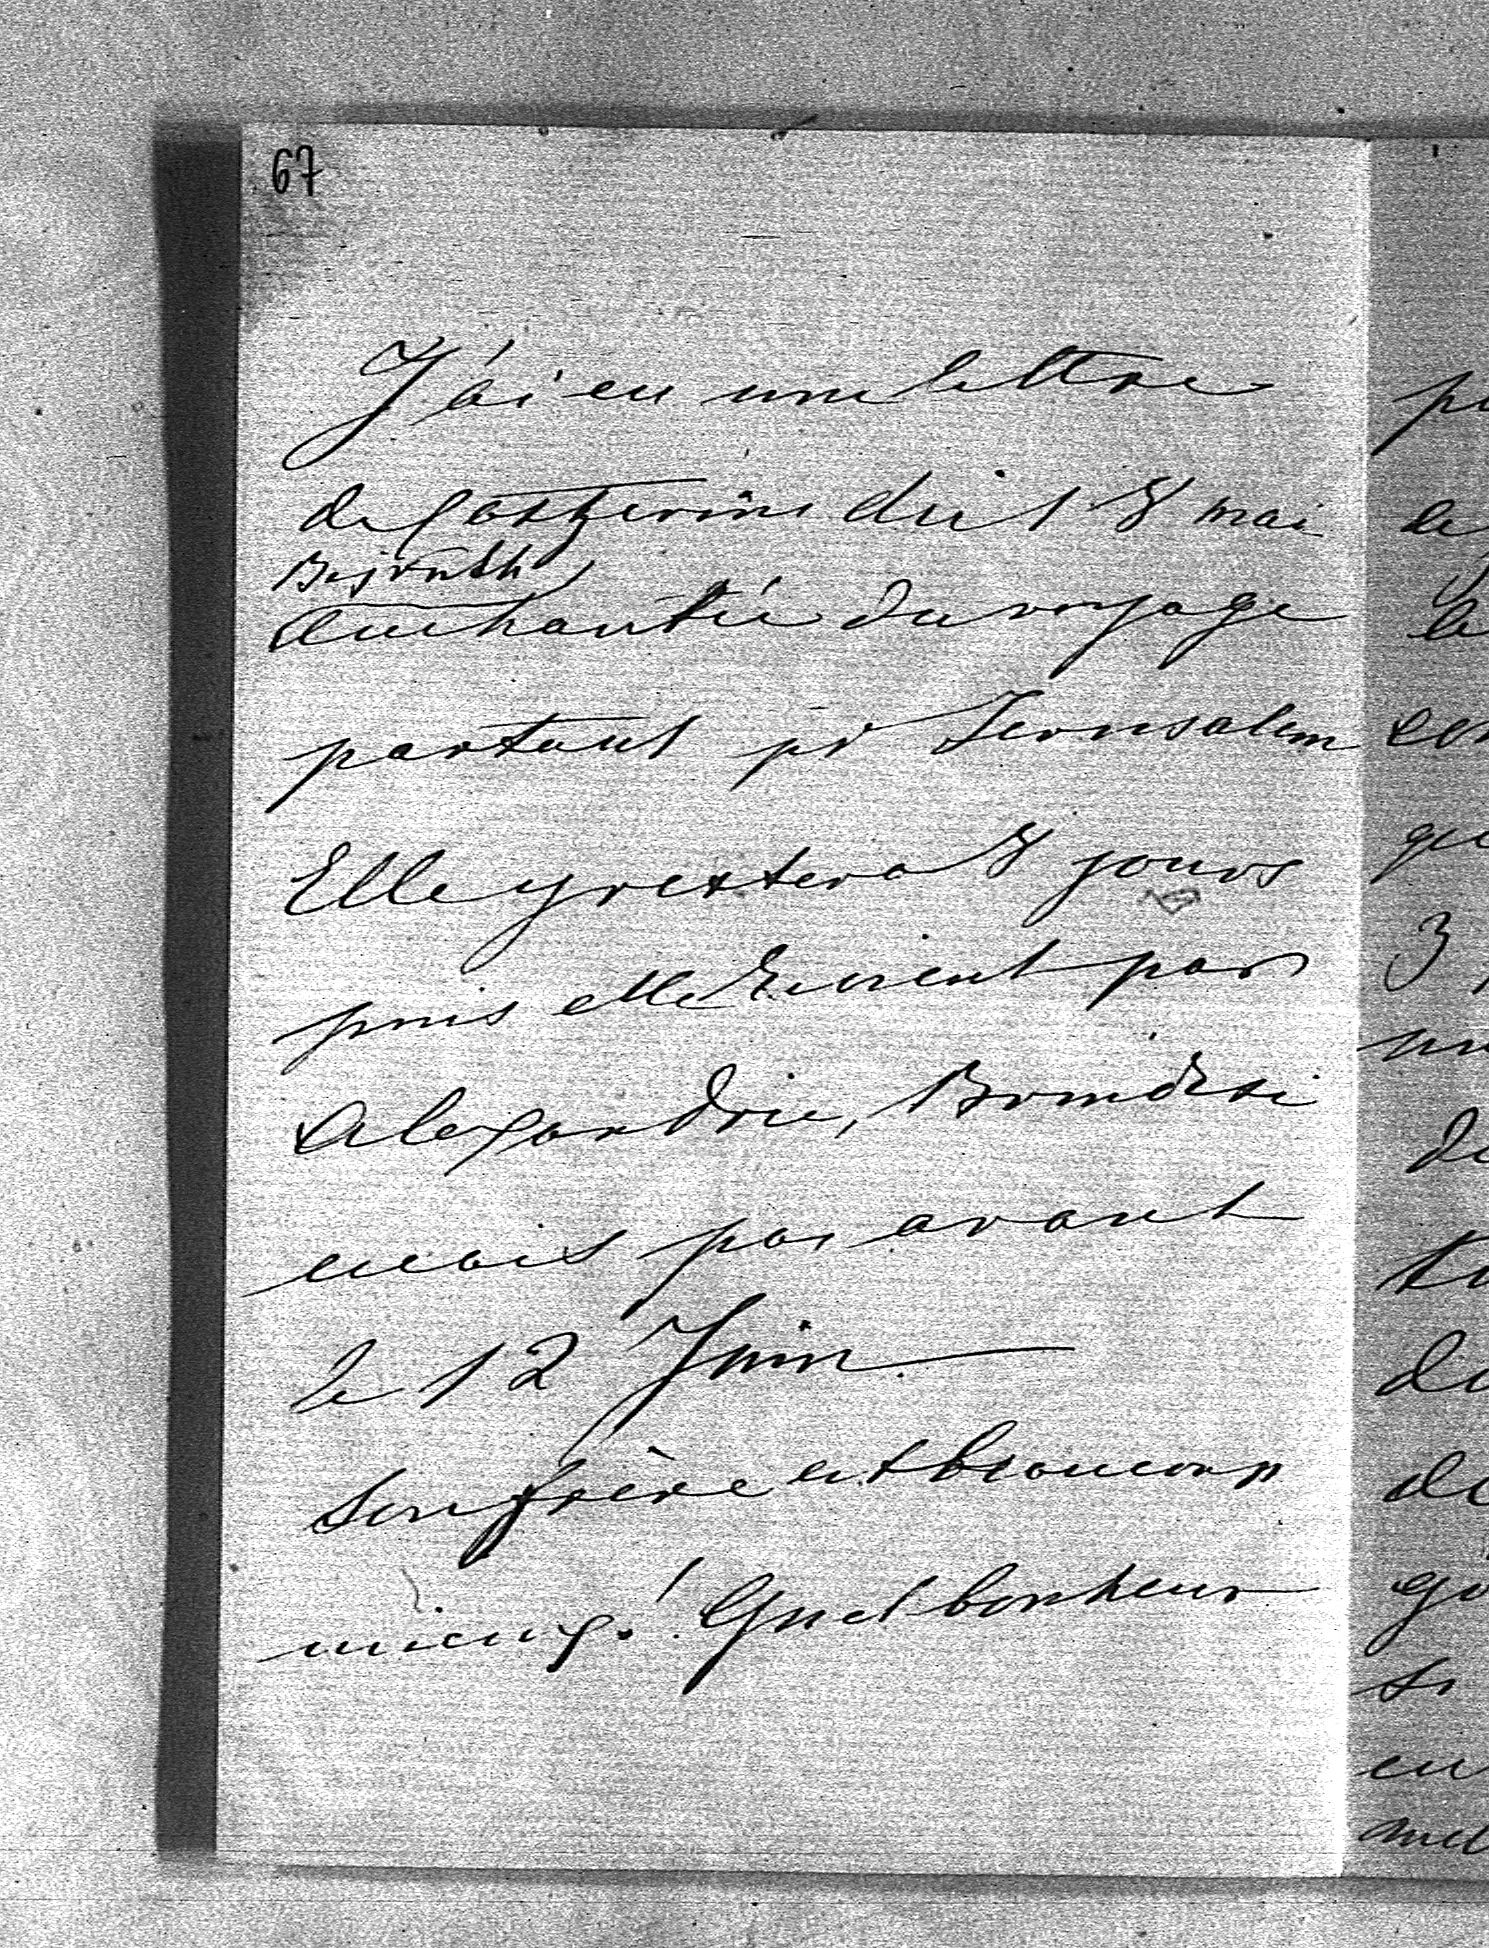 67
J'ai eu une lettre
de Catherine du 18 mai
Bejruth
enchantée du voyage
partout pr Jerusalem
Elle y restera 8 jours
puis elle revient par
Alexandrie, Brindisi
mais pas avant
le 12 Juin.
Son frère est beaucoup
mieux! Quel bonheur